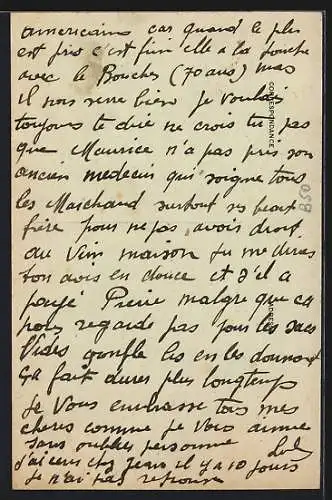 americains car quand le plus
est pris c'est fini elle a la
avec le Boucher (70 ans) mais
il nous sere bien je voulais
toujours te dire ne crois tu pas
que Maurice n'a pas pris son
ancien medecin qui soigne tous
les Marchand surtout ses beau
frère pour ne pas avoir droit
au Vin maison tu me diras
ton avis en douce et s'il a
payé Pierre malgre que ca
nous regarde pas pour les sacs
Vides gonfle les en les donnant
ça fait durer plus longtemps
Je Vous embrasse tous mes
cheres comme je Vous aime
sans oublier personne
j'ai ecris chez Jean il y a 10 jours
je n'ai pas reponse
CORRESPONDANCE
B50